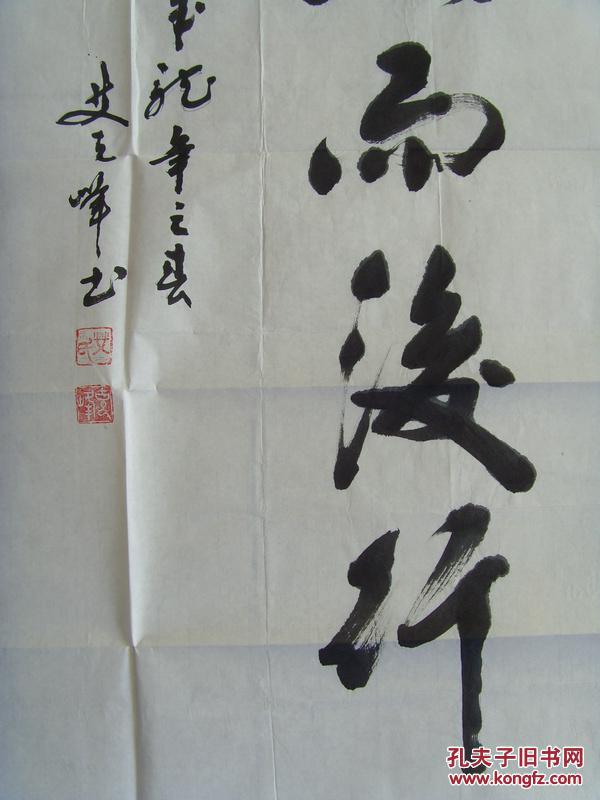 而後行
龍年之春
艾克峰书
孔夫子旧书网
www.kongfz.com